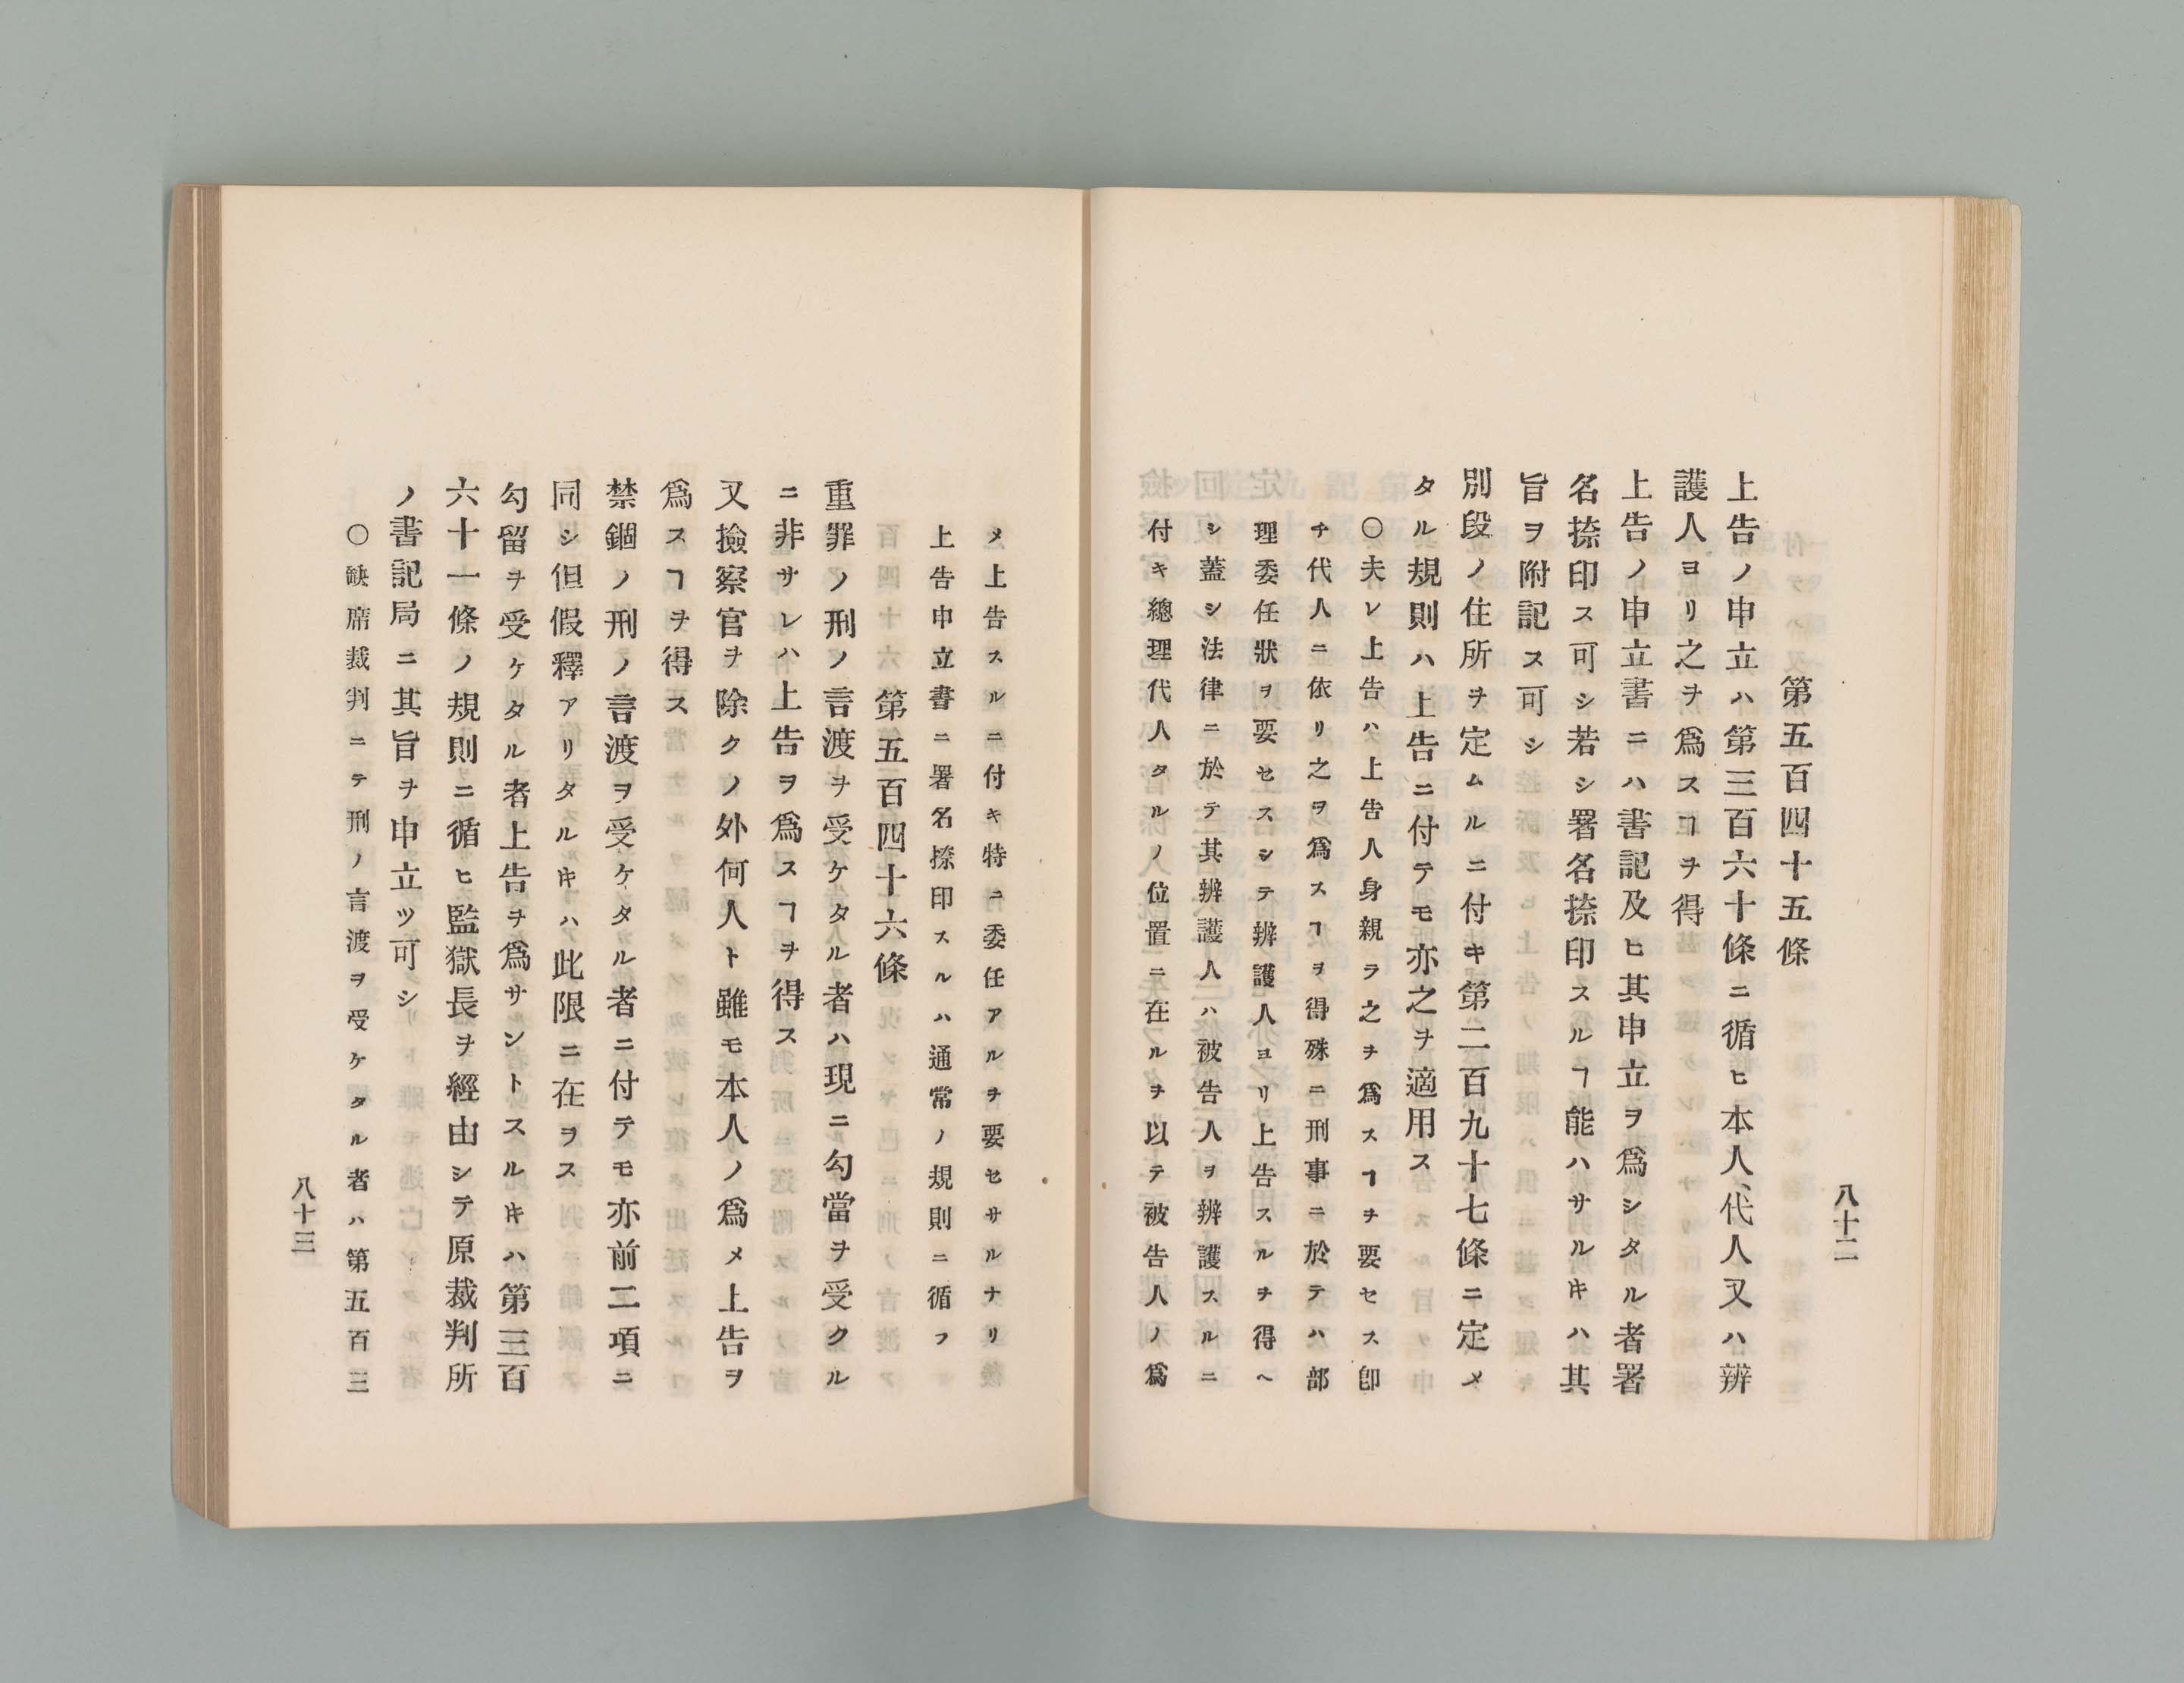 八十二
第五百四十五條
上告ノ申立ハ第三百六十條ニ循ヒ本人、代人又ハ辨
護人ヨリ之ヲ爲スヿヲ得
上告ノ申立書ニハ書記及ヒ其申立ヲ爲シタル者署
名捺印ス可シ若シ署名捺印スルヿ能ハサルキハ其
旨ヲ附記ス可シ
別段ノ住所ヲ定ムルニ付キ第二百九十七條ニ定メ
タル規則ハ上告ニ付テモ亦之ヲ適用ス
〇夫レ上告ハ上告人身親ラ之ヲ爲スヿヲ要セス卽
チ代人ニ依リ之ヲ爲スヿヲ得殊ニ刑事ニ於テハ部
理委任狀ヲ要セスシテ辨護人ヨリ上告スルヲ得ヘ
シ蓋シ法律ニ於テ其辨護人ハ被告人ヲ辨護スルニ
付キ總理代人タルノ位置ニ在ルヲ以テ被告人ノ爲
メ上告スルニ付キ特ニ委任アルヲ要セサルナリ
上告申立書ニ署名捺印スルハ通常ノ規則ニ循フ
第五百四十六條
重罪ノ刑ノ言渡ヲ受ケタル者ハ現ニ勾當ヲ受クル
ニ非サレハ上告ヲ爲スヿヲ得ス
又撿察官ヲ除クノ外何人ト雖モ本人ノ爲メ上告ヲ
爲スヿヲ得ス
禁錮ノ刑ノ言渡ヲ受ケタル者ニ付テモ亦前二項ニ
同シ但假釋アリタルキハ此限ニ在ヲス
勾留ヲ受ケタル者上告ヲ爲サントスルキハ第三百
六十一條ノ規則ニ循ヒ監獄長ヲ經由シテ原裁判所
ノ書記局ニ其旨ヲ申立ツ可シ
〇缺席裁判ニテ刑ノ言渡ヲ受ケタル者ハ第五百三
八十三